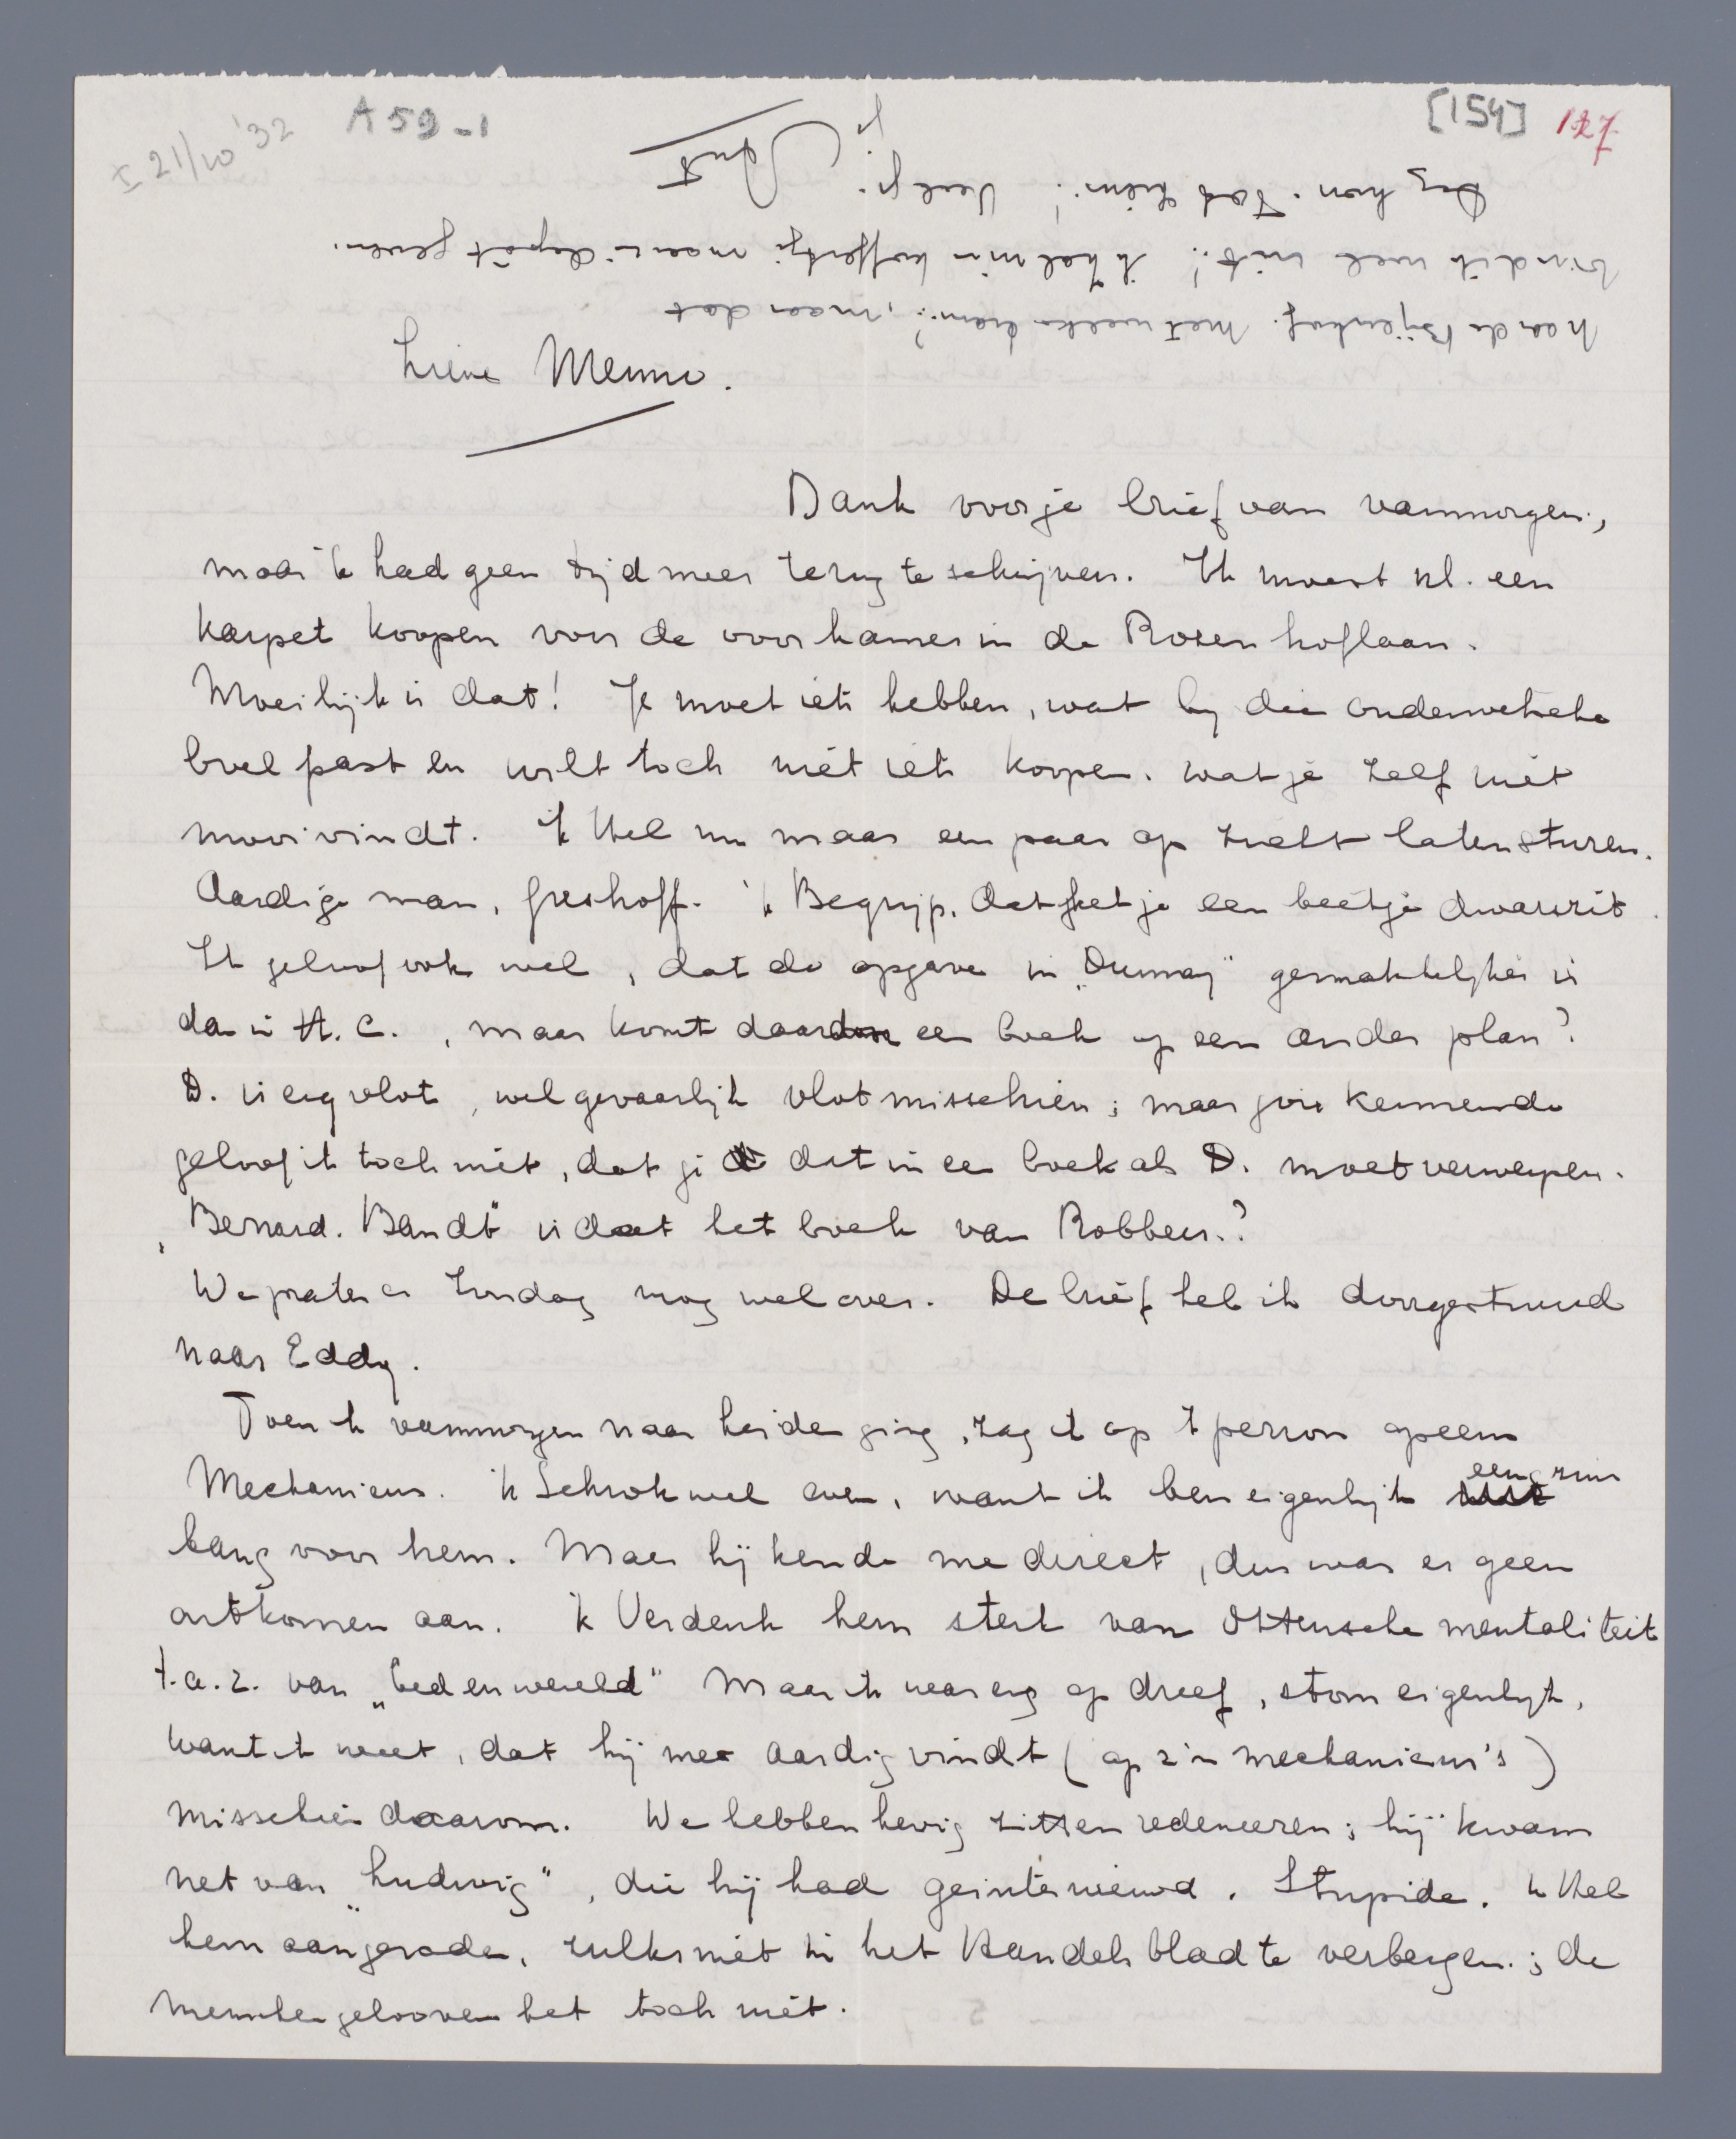 I 21/10 '32
A 59-1
[154] 127
naar de Bijenkorf. Met welke trein?, maar dat
vind ik wel uit! Ik zal m'n koffertje maar in depôt geven.
Dag hon. Tot ziens! Veel fr.
je
Ant
Lieve Menno.
Dank voor je brief van vanmorgen,
maar 'k had geen tijd meer terug te schrijven. Ik moest nl. een
karpet koopen voor de voorkamer in de Rozenhoflaan.
Moeilijk is dat! Je moet iets hebben, wat bij die ouderwetsche
boel past en wilt toch niet iets koopen, wat je zelf niet
mooi vindt. 'k Heb nu maar een paar op zicht laten sturen.
Aardige man, Greshoff. 'k Begrijp, dat het je een beetje dwarszit.
Ik geloof ook wel, dat de opgave in „Dumay" gemakkelijker is
dan in H.C., maar komt daardoor een boek op een ander plan?
D. is erg vlot, wel gevaarlijk vlot misschien; maar jou kennende
geloof ik toch niet, dat je dat in een boek als D. moet verwerpen.
„Bernard Bandt" is dat het boek van Robbers?
We praten er Zondag nog wel over. De brief heb ik doorgestuurd
naar Eddy.
Toen ik vanmorgen naar Leiden ging, zag ik op 't perron opeens
Mechanicus. 'k Schrok wel even, want ik ben eigenlijk eengszins
bang voor hem. Maar hij kende me direct, dus was er geen
ontkomen aan. 'k Verdenk hem sterk van Ottensche mentaliteit
t.a.z. van „bed en wereld" Maar ik was erg op dreef, stom eigenlijk,
want ik weet, dat hij me aardig vindt (op z'n mechanicus's)
misschien daarom. We hebben hevig zitten redeneeren; hij kwam
net van „Ludwig", die hij had geinterviewd. Stupide. 'k Heb
hem aangeraden, zulks niet in het Handelsblad te verbergen; de
menschen gelooven het toch niet.